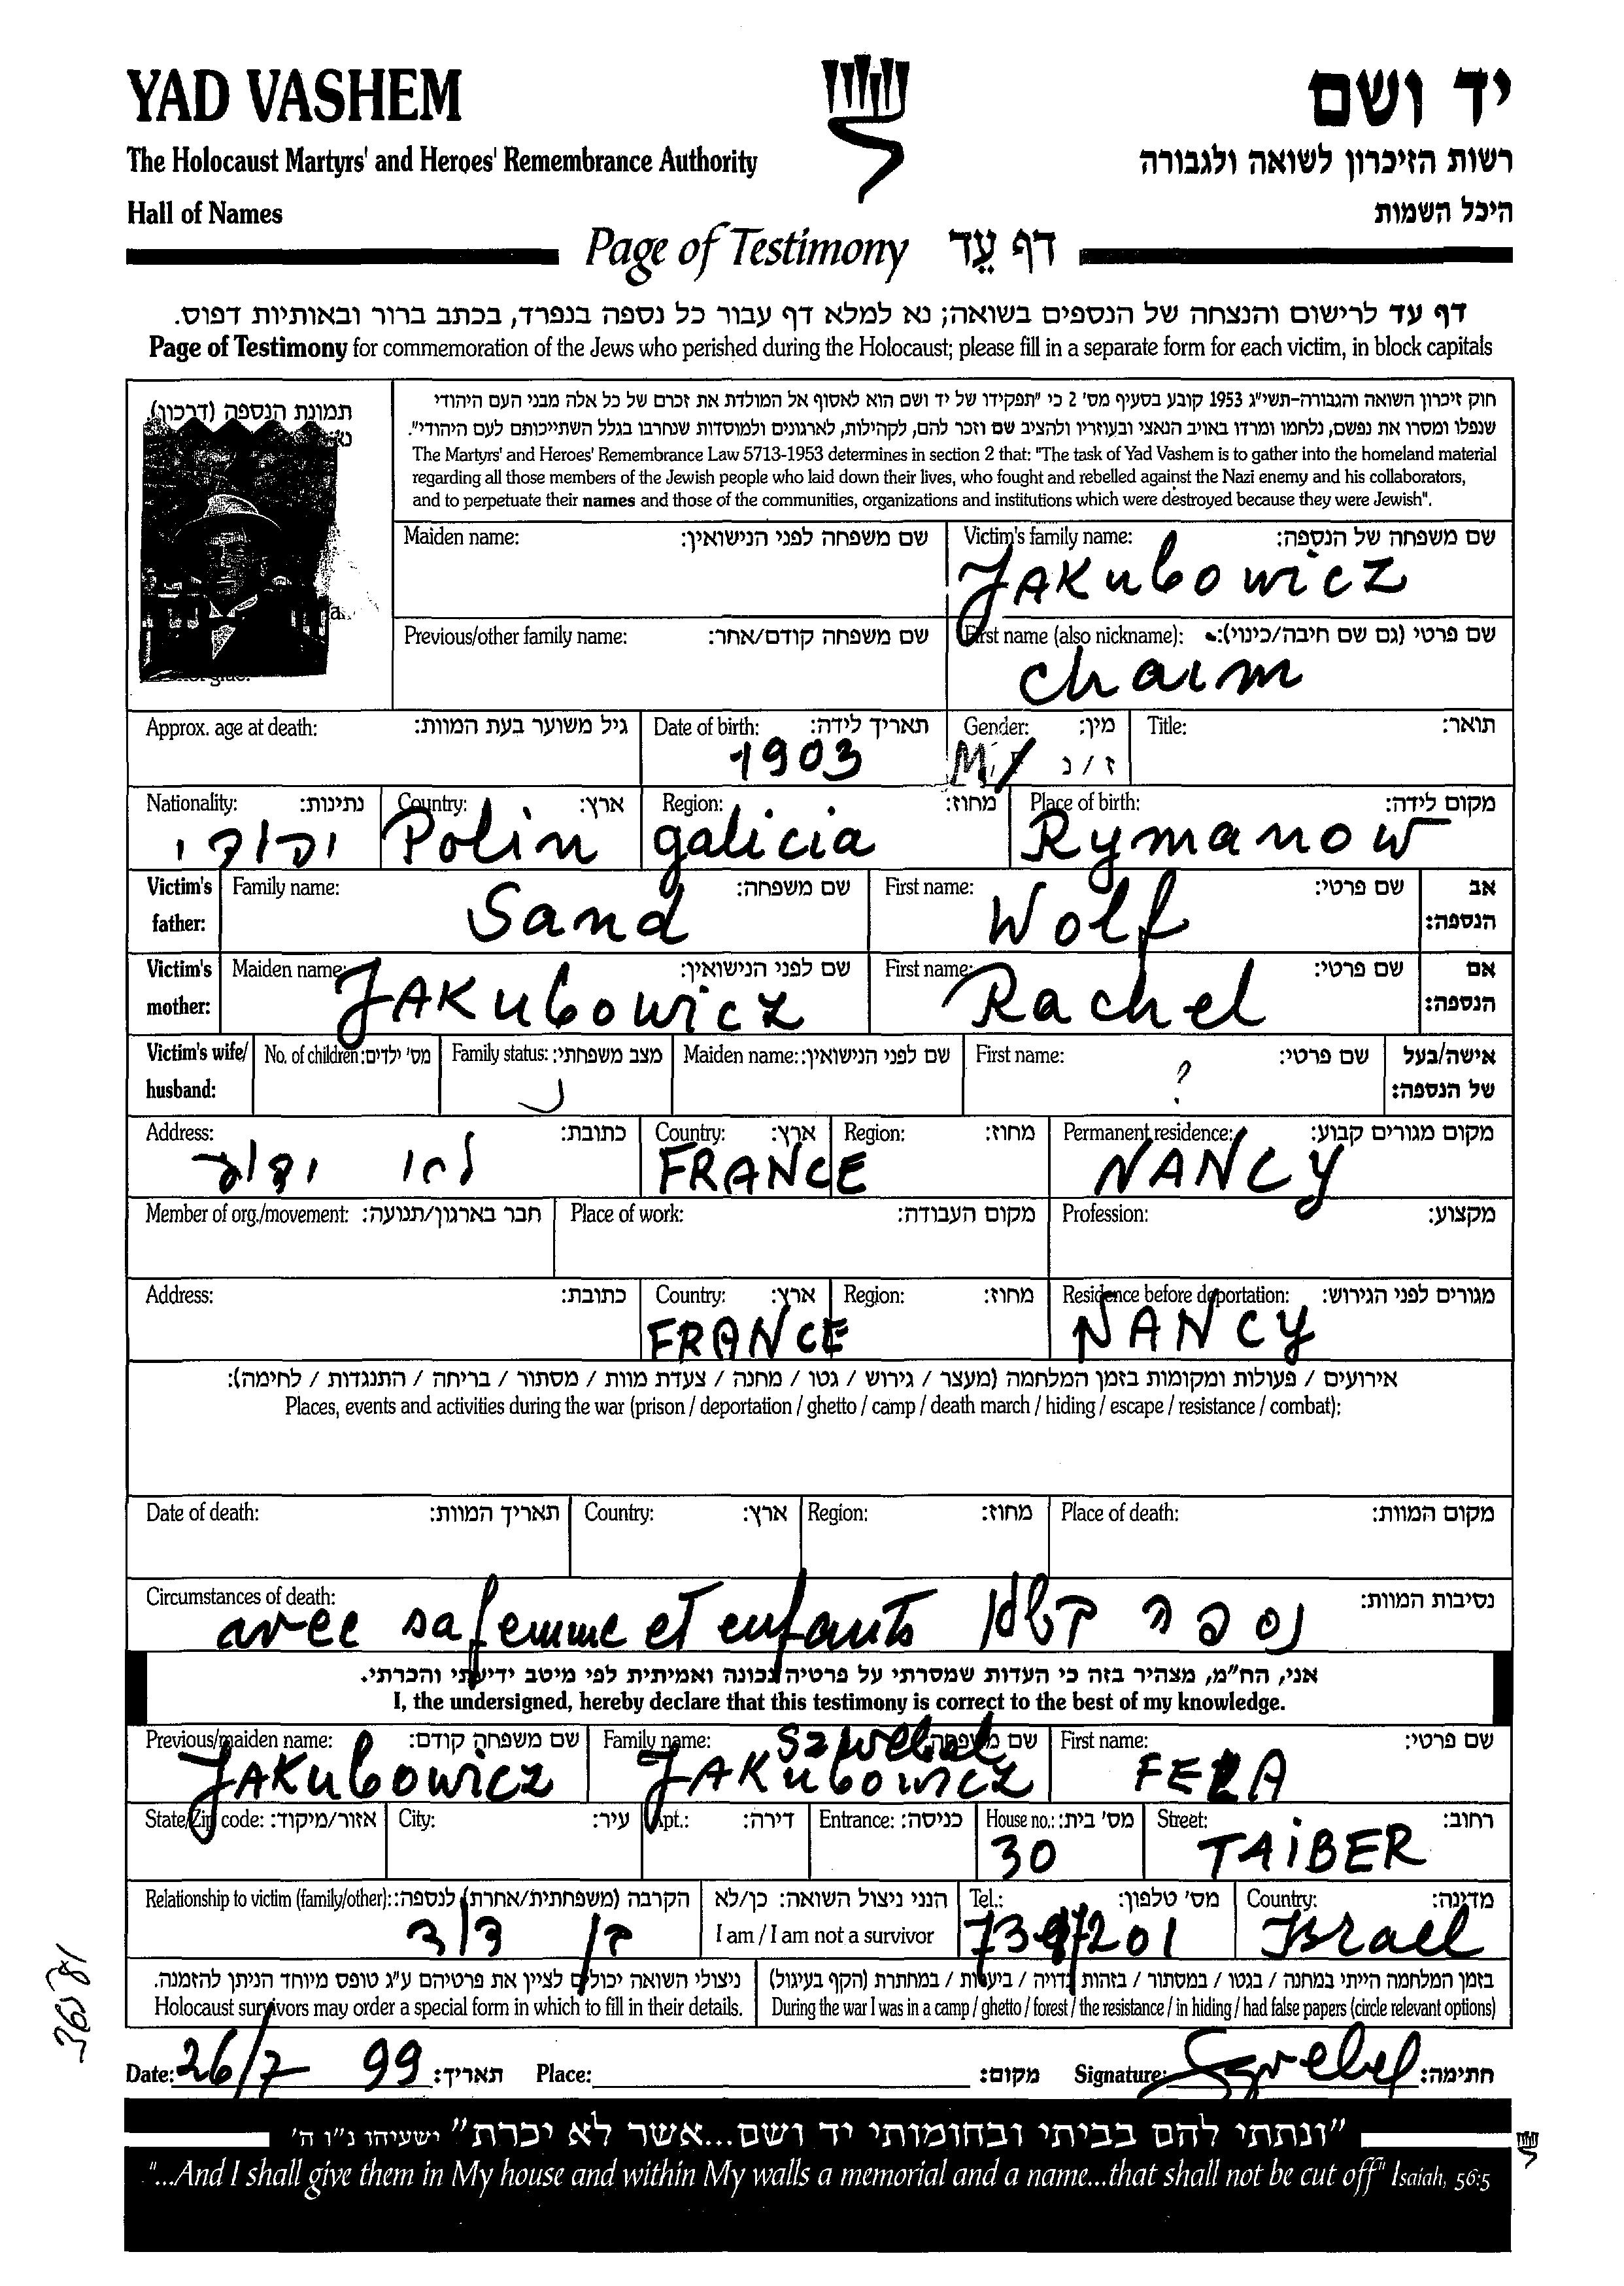 YAD VASHEM
יד ושם
The Holocaust Martyrs' and Heroes' Remembrance Authority
רשות הזיכרון לשואה ולגבורה
Hall of Names
היכל השמות
Page of Testimony דף עֵד
דף עד לרישום והנצחה של הנספים בשואה; נא למלא דף עבור כל נספה בנפרד, בכתב ברור ובאותיות דפוס.
Page of Testimony for commemoration of the Jews who perished during the Holocaust; please fill in a separate form for each victim, in block capitals
תמונת הנספה (דרכון).
חוק זיכרון השואה והגבורה-תשי"ג 1953 קובע בסעיף מס' 2 כי "תפקידו של יד ושם הוא לאסוף אל המולדת את זכרם של כל אלה מבני העם היהודי
שנפלו ומסרו את נפשם, נלחמו ומרדו באויב הנאצי ובעוזריו ולהציב שם וזכר להם, לקהילות, לארגונים ולמוסדות שנחרבו בגלל השתייכותם לעם היהודי".
The Martyrs' and Heroes' Remembrance Law 5713-1953 determines in section 2 that: "The task of Yad Vashem is to gather into the homeland material
regarding all those members of the Jewish people who laid down their lives, who fought and rebelled against the Nazi enemy and his collaborators,
and to perpetuate their names and those of the communities, organizations and institutions which were destroyed because they were Jewish".
Maiden name: שם משפחה לפני הנישואין: Victim's family name: שם משפחה של הנספה:
JAKubowicz
Previous/other family name: שם משפחה קודם/אחר: First name (also nickname): שם פרטי (גם שם חיבה/כינוי):
Chaim
Approx. age at death: גיל משוער בעת המוות: Date of birth: תאריך לידה: Gender: מין: Title: תואר:
1903 M/ ז / נ
Nationality: נתינות: Country: ארץ: Region: מחוז: Place of birth: מקום לידה:
יהודי Polin galicia Rymanow
Victim's father: Family name: שם משפחה: First name: שם פרטי: אב הנספה:
Sand Wolf
Victim's mother: Maiden name: שם לפני הנישואין: First name: שם פרטי: אם הנספה:
JAKubowicz Rachel
Victim's wife/ husband: No. of children: מס' ילדים: Family status: מצב משפחתי: Maiden name: שם לפני הנישואין: First name: שם פרטי: אישה/בעל של הנספה:
נ ?
Address: כתובת: Country: ארץ: Region: מחוז: Permanent residence: מקום מגורים קבוע:
לא ידוע FRANCE NANCY
Member of org./movement: חבר בארגון/תנועה: Place of work: מקום העבודה: Profession: מקצוע:
Address: כתובת: Country: ארץ: Region: מחוז: Residence before deportation: מגורים לפני הגירוש:
FRANCE NANCY
אירועים / פעולות ומקומות בזמן המלחמה (מעצר / גירוש / גטו / מחנה / צעדת מוות / מסתור / בריחה / התנגדות / לחימה):
Places, events and activities during the war (prison / deportation / ghetto / camp / death march / hiding / escape / resistance / combat):
Date of death: תאריך המוות: Country: ארץ: Region: מחוז: Place of death: מקום המוות:
Circumstances of death: נסיבות המוות:
avec sa femme et enfants נספה
אני, הח"מ, מצהיר בזה כי העדות שמסרתי על פרטיה נכונה ואמיתית לפי מיטב ידיעתי והכרתי.
I, the undersigned, hereby declare that this testimony is correct to the best of my knowledge.
Previous/maiden name: שם משפחה קודם: Family name: שם משפחה: First name: שם פרטי:
JAKubowicz Szwebel JAKubowicz FELA
State/Zip code: אזור/מיקוד: City: עיר: Apt.: דירה: Entrance: כניסה: House no.: מס' בית: Street: רחוב:
30 TAIBER
Relationship to victim (family/other): הקרבה (משפחתית/אחרת) לנספה: הנני ניצול השואה: כן/לא Tel.: מס' טלפון: Country: מדינה:
בן דוד I am / I am not a survivor Israel
ניצולי השואה יכולים לציין את פרטיהם ע"ג טופס מיוחד הניתן להזמנה. בזמן המלחמה הייתי במחנה / בגטו / במסתור / בזהות בדויה / ביערות / במחתרת (הקף בעיגול)
Holocaust survivors may order a special form in which to fill in their details. During the war I was in a camp / ghetto / forest / the resistance / in hiding / had false papers (circle relevant options)
Date: 26/7 99 תאריך: Place: מקום: Signature: חתימה:
"ונתתי להם בביתי ובחומותי יד ושם...אשר לא יכרת" ישעיהו נ"ו ה'
"...And I shall give them in My house and within My walls a memorial and a name...that shall not be cut off" Isaiah, 56:5